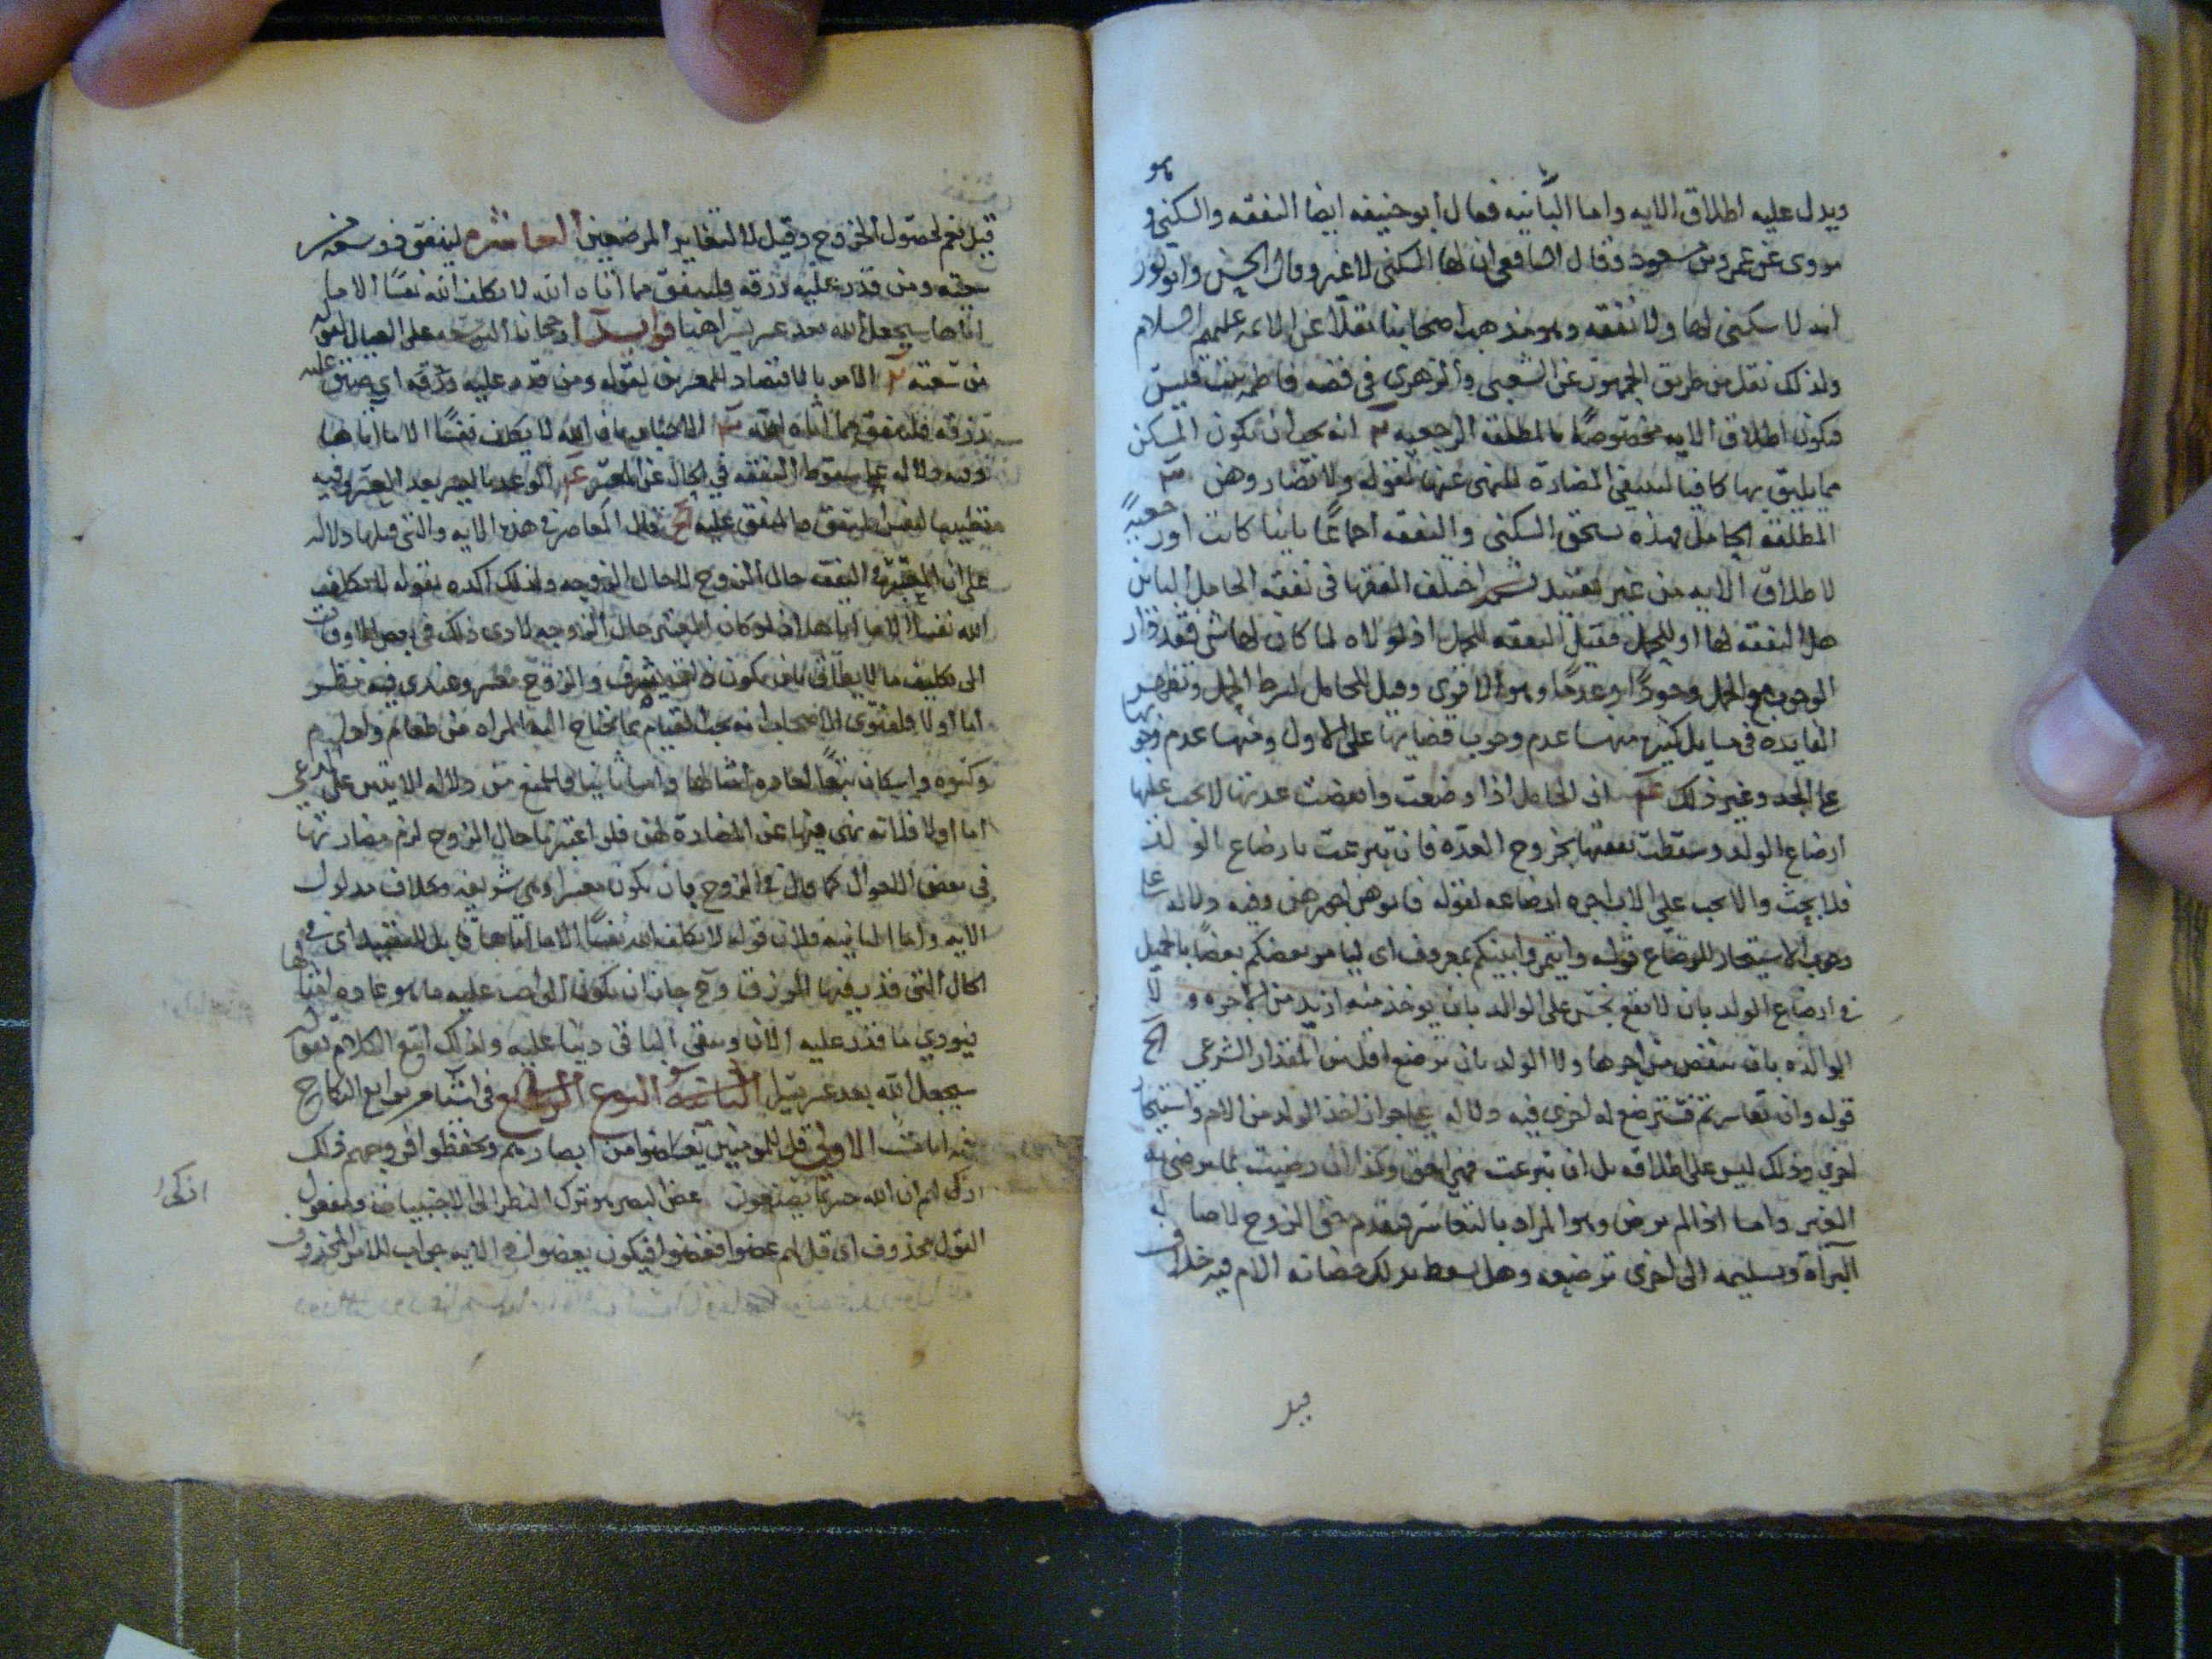 ويدل عليه اطلاق الايه واما الباينه فقال أبو حنيفه ايضا النفقه والسكنى وهو
مروى عن عمر وبن مسعود وقال الشافعى ان لها السكنى لا غير وقال الحسن وابو ثور
انه لا سكنى لها ولا نفقه وهو مذهب اصحابنا نقلا عن الائمه عليهم السلام
ولذلك نقل من طريق الجمهور عن الشعبى والزهرى فى قصه فاطمه بنت قيس
فيكون اطلاق الايه مخصوصًا بالمطلقه الرجعيه انه يجب ان يكون المسكن
مما يليق بها كافيا لينتفى المضارة للنهى عنها لقوله ولا تضاروهن
المطلقه الحامل وهذه تستحق السكنى والنفقه اجماعًا باينا كانت او رجعيةً
لاطلاق الايه من غير تقييد ثم اختلف الفقها فى نفقه الحامل الباين
هل النفقه لها او للحمل فقيل النفقه للحمل اذ لولاه لما كان لها شى فقد دار
الوجوب مع الحمل وجودًا وعدمًا وهو الاقوى وقيل للحامل لشرط الحمل وتظهر
الفايده فى مسايل كثيره منها عدم وجوب قضايها على الاول ومنها عدم وجوبها
على الجد وغير ذلك ان الحامل اذا وضعت وانقضت عدتها لا يجب عليها
ارضاع الولد وسقطت نفقتها بخروج العدة فان تبرعت بارضاع الولد
فلا بحث والا يجب على الاب اجره ارضاعه لقوله فاتوهن اجورهن وفيه دلاله على
وجوب الاستيجار للرضاع قوله وايتمروا بينكم بمعروف اى ليامر بعضكم بعضًا بالجميل
فى ارضاع الولد بان لا يقع بخس على الوالد بان يوخذ منه ازيد من الاجره ولا
الوالده بان ينقص من اجرها ولا الولد بان ترضع اقل من المقدار الشرعى
قوله وان تعاسرتم فسترضع له اخرى فيه دلاله على جواز اخذ الولد من الام واستيجار
اخرى وذلك ليس على اطلاقه بل ان تبرعت فهى احق وكذا ان رضيت بما يرضى به
الغير واما اذا لم ترض وهو المراد بالتعاسر فيقدم حق الزوج لاصاله
البرأة وتسليمه الى اخرى ترضعه وهل يسقط بذلك حضانه الام فيه خلاف
قيل
قيل نعم لحصول الحروج وقيل لا لتغاير الموضعين العاشره لينفق ذو سعه من
سعته ومن قدر عليه رزقه فلينفق مما اتاه الله لا يكلف الله نفسًا الا ما
اتاها سيجعل الله بعد عسر يسرا هنا فوايد رجحان التوسعه على العيال لقوله
من سعته الامر بالاقتصاد للمعسر لقوله ومن قدر عليه رزقه اى ضيق عليه
رزقه فلينفق مما اتاه الله الاخبار بان الله لا يكلف نفسًا الا ما اتاها
وفيه دلاله على سقوط النفقه فى الحال عن المعسر الوعد باليسر بعد العسر وفيه
قال المعاصر فى هذه الايه والتى قبلها دلاله
على ان المعتبر فى النفقه حال الزوج لا حال الزوجه ولذلك اكده بقوله لا يكلف
الله نفسا الا ما اتاها اذ لو كان المعتبر حال الزوجه لادى ذلك فى بعض الاوقات
الى تكليف ما لا يطاق بان يكون ذات شرف والزوج معسر وعندى فيه نظر
اما أولا فلفتوى الاصحاب انه يجب القيام بما تحتاج اليه المراه من طعام وادام
وكسوه واسكان تبعًا لعاده امثالها واما ثانيا فالمنع من دلاله الايتين على المدعى
اما اولا فلانه نهى فيها عن المضارة لهن فلو اعتبرنا حال الزوج لزم مضارتها
فى بعض الاحوال كما قال فى الزوج بان يكون معسرا وهى شريفه وخلاف مدلول
الايه واما الثانيه فلان قوله لا يكلف الله نفسًا الا ما اتاها قابل للتقييد اى فى
الحال التى قدر فيها الرزق وح جاز ان يكون الواجب عليه ما هو عاده امثالها
فيودى ما قدر عليه الان ويبقى الباقى دينا عليه ولذلك اتبع الكلام بقوله
سيجعل الله بعد عسر يسرا النوع الرابع فى اشيا من توابع النكاح
فيه ايات الاولى قل للمومنين يغضوا من ابصارهم ويحفظوا فروجهم ذلك
ازكى لهم ان الله خبير بما يصنعون غض البصر هو ترك النظر الى الاجنبيات ومفعول
القول محذوف اى قل لهم غضوا فغضوا فيكون يغضوا فى الايه جواب للامر المحذوف
ازكى